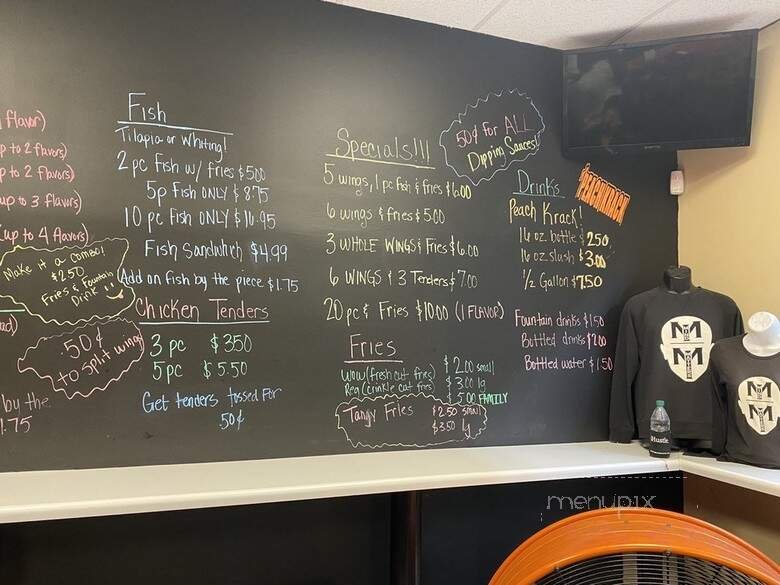 flavor)
p to 2 flavors)
p to 2 flavors)
up to 3 flavors)
up to 4 flavors)
Make it a combo!
$2.50
Fries & Fountain
Drink
.50¢
to split wing
by the
1.75
Fish
Tilapia or Whiting!
2 pc Fish w/ fries $5.00
5p Fish ONLY $8.75
10 pc Fish ONLY $16.95
Fish Sandwhich $4.99
Add on fish by the piece $1.75
Chicken Tenders
3 pc $3.50
5pc $5.50
Get tenders tossed for
.50¢
Specials!!!
5 wings, 1 pc fish & fries $6.00
6 wings & fries $5.00
3 WHOLE WINGS & Fries $6.00
6 WINGS & 3 Tenders $7.00
20 pc & Fries $10.00 (1 FLAVOR)
Fries
Wow (fresh cut fries) $2.00 small
Reg (crinkle cut fries $3.00 lg
$5.00 FAMILY
Tangy Fries $2.50 small
$3.50 lg
50¢ for ALL
Dipping Sauces!
Drinks
Peachkrack
Peach Krack!
16 oz. bottle $2.50
16 oz. slush $3.00
1/2 Gallon $7.50
Fountain drinks $1.50
Bottled drinks $2.00
Bottled water $1.50
Hustle
menupix